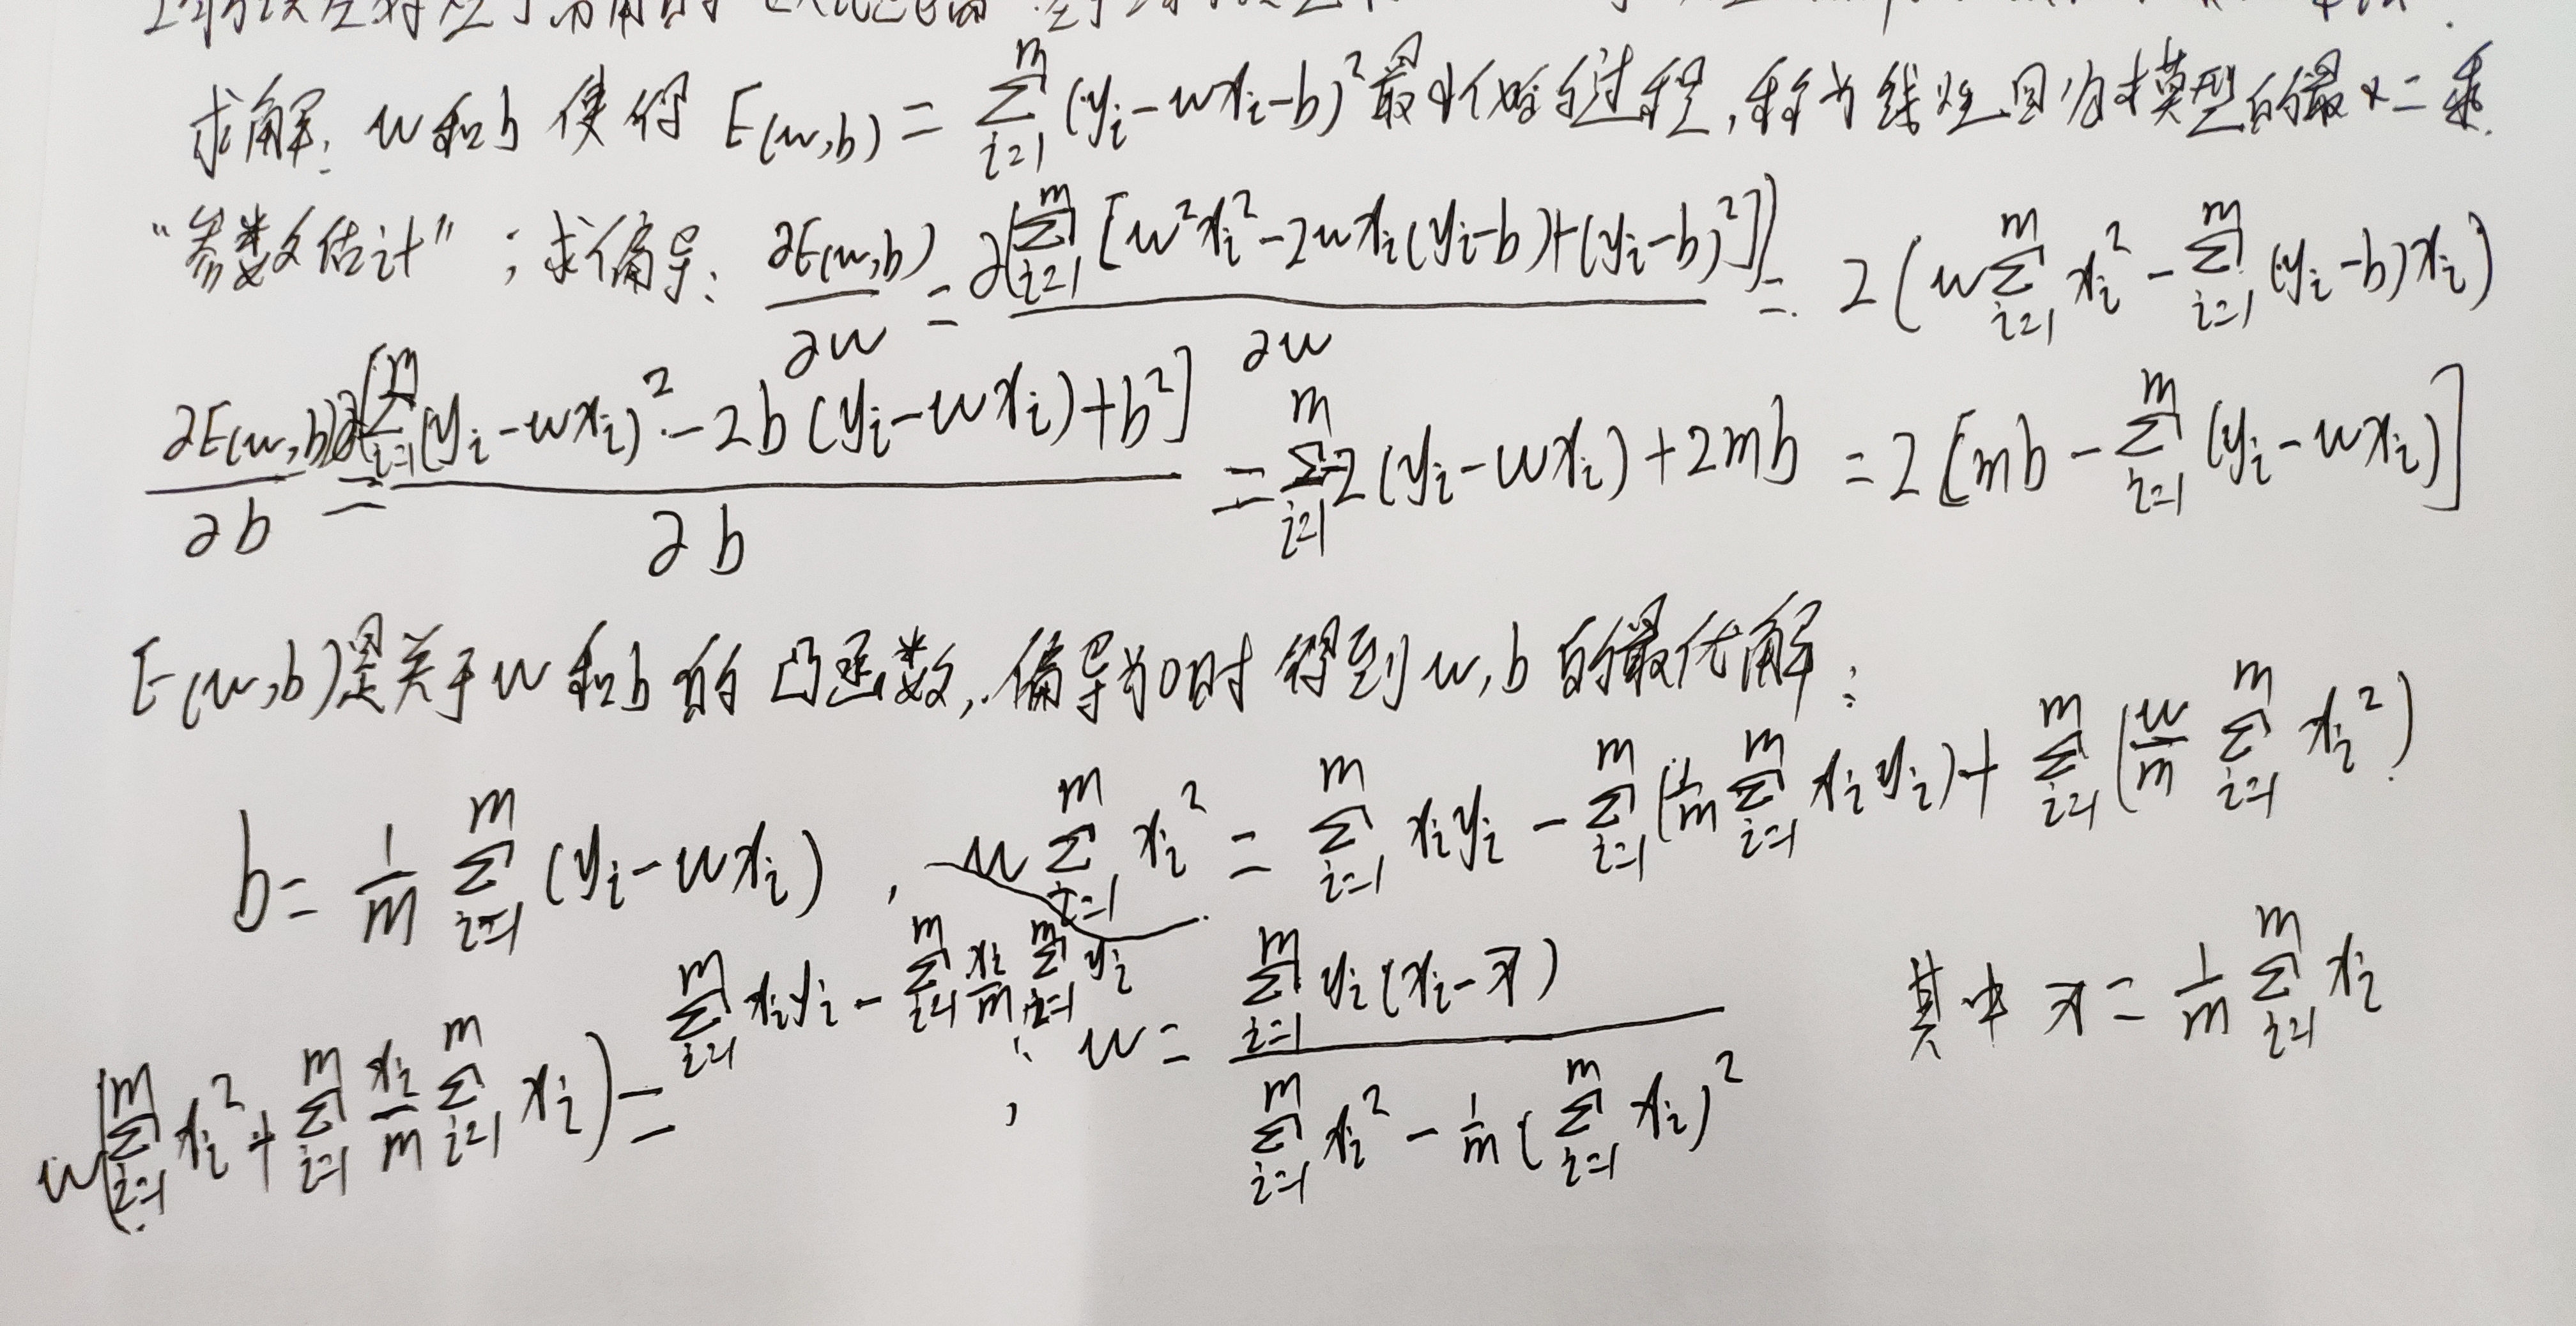 求解: w和b 使得 E(w,b) = ∑_{i=1}^{m} (y_i - wx_i - b)² 最小化的过程, 称为线性回归模型的最小二乘
"参数估计" ; 求偏导: ∂E(w,b)/∂w = ∂(∑_{i=1}^{m} [w²x_i² - 2wx_i(y_i-b) + (y_i-b)²])/∂w = 2(w∑_{i=1}^{m} x_i² - ∑_{i=1}^{m} (y_i-b)x_i)
∂E(w,b)/∂b = ∂[∑_{i=1}^{m} (y_i-wx_i)² - 2b(y_i-wx_i) + b²]/∂b = ∑_{i=1}^{m} -2(y_i-wx_i) + 2mb = 2[mb - ∑_{i=1}^{m} (y_i-wx_i)]
E(w,b)是关于w和b的凸函数, 偏导为0时得到w,b的最优解:
b = 1/m ∑_{i=1}^{m} (y_i-wx_i) , w∑_{i=1}^{m} x_i² = ∑_{i=1}^{m} x_iy_i - ∑_{i=1}^{m} (1/m ∑_{i=1}^{m} x_iy_i) + ∑_{i=1}^{m} (w/m ∑_{i=1}^{m} x_i²)
w(∑_{i=1}^{m} x_i² + ∑_{i=1}^{m} x_i/m ∑_{i=1}^{m} x_i) = ∑_{i=1}^{m} x_iy_i - ∑_{i=1}^{m} x_i/m ∑_{i=1}^{m} y_i , w = ∑_{i=1}^{m} y_i(x_i-x̄) / (∑_{i=1}^{m} x_i² - 1/m (∑_{i=1}^{m} x_i)²) 其中 x̄ = 1/m ∑_{i=1}^{m} x_i